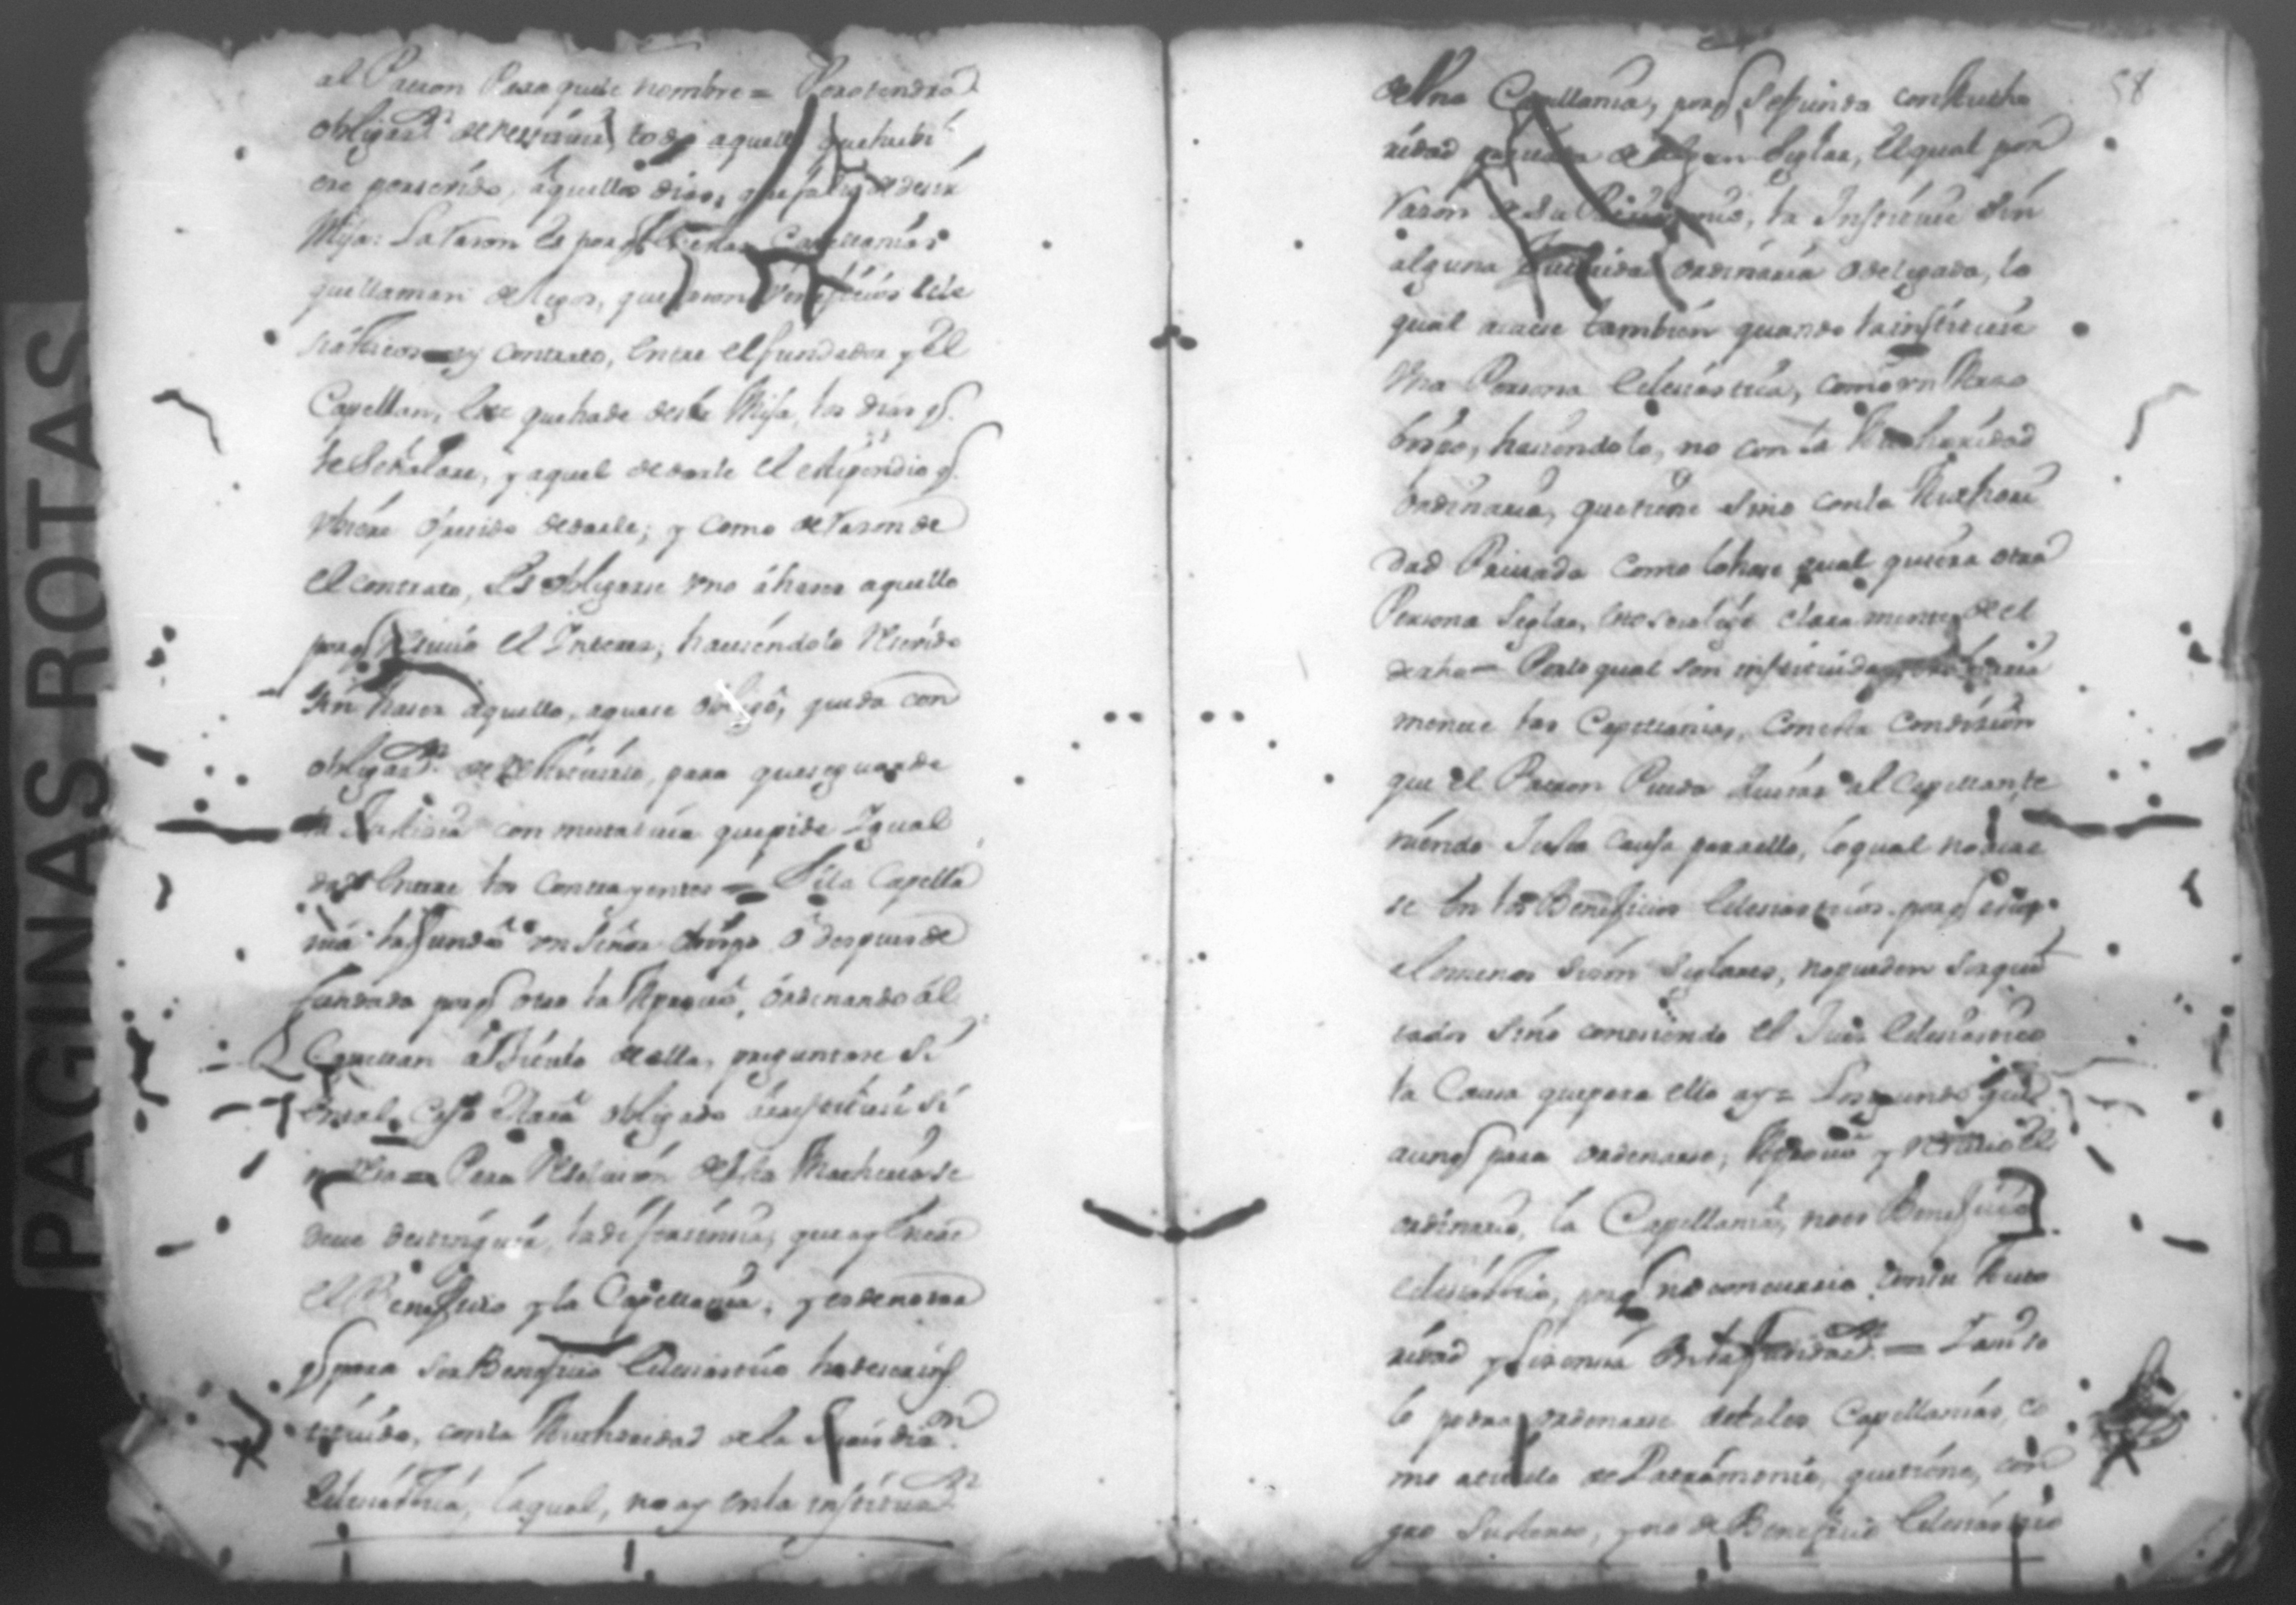 PAGINAS ROTAS
al Patron Para quele nombre = Pero tendra
obligaon de restituir todo aquello quehubi
ere perserido, aquellos dias, que falto de desir
Misa: La rason es porq estas Capellanias
quellaman de legos, que noson Veneficios Ecle
siasticos ay contrato, entre el fundador y El
Capellan, Este que hade desir Misa, los dias q.
le Señalare, y aquel de darle el estipendio q.
Ubiere ofresido dedarle; y como de rason de
el contrato, Es obligarse uno à haser aquello
porq resive el Interes; haviendolo resivido
sin haser aquello, aquese obligò, queda con
obligaon de restituirlo, para queseguarde
la Justicia conmutativa quepide Igual
dad Entre los contrayentes = Si la Capella
nia la funda un Señor obispo ò despues de
fundada porq otro la Aprueva, ordenando àl
Capellan à Titulo de ella, preguntase Si
en tal Caso Estará obligado à restituir Si
no Para Resolucion desta Materia se
deve destinguir, la disferensia, que ay Entre
El Beneficio y la Capellania, y es denotar
q para ser Beneficio Eclesiastico hadeser ins
tituido, con la Authoridad de la Jurisdion
Eclesiastica, laqual, no ay en la instituon
58
de Una Capellania, porq Sefunda con Autho
ridad privada de algun Seglar, El qual por
rason de su Patrimonio, la Instituie Sin
alguna Authoridad ordinaria o delegada, lo
qual acaese tambien quando la instituie
Una Persona Eclesiastica, como un Arzo
bispo, hasiendolo, no con la Authoridad
ordinaria, quetiene sino con la Authori
dad Privada como lo hase qual quiera otra
Persona Seglar, Eso se colige claramente de el
derecho = Porlo qual son instituidas, ordinaria
mente las Capellanias, con esta Condision
que el Patron Pueda quitar al Capellan, te
niendo Justa causa para ello, loqual no acae
se En los Beneficios Eclesiasticos. porq
almenos Seran Seglares, nopueden Ser qui
tados Sino conosiendo el Jues Eclesiastico
la Causa quepara ello ay = Losegundo que
aunq para ordenarse, Aprovo y resivio El
ordinario, la Capellania, noes Beneficio
Eclesiastico, porq no concurrio Con su Auto
ridad y Lisensia En la fundaon = Y an si
lo podra ordenarse detales Capellanias, co
mo a titulo de Patrimonio, quetiene, con
gro Sustento, y no de Beneficio Eclesiastico